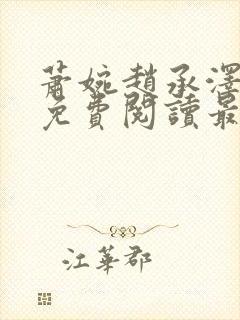 蕭婉趙承澤
免費閱讀最
江華郡